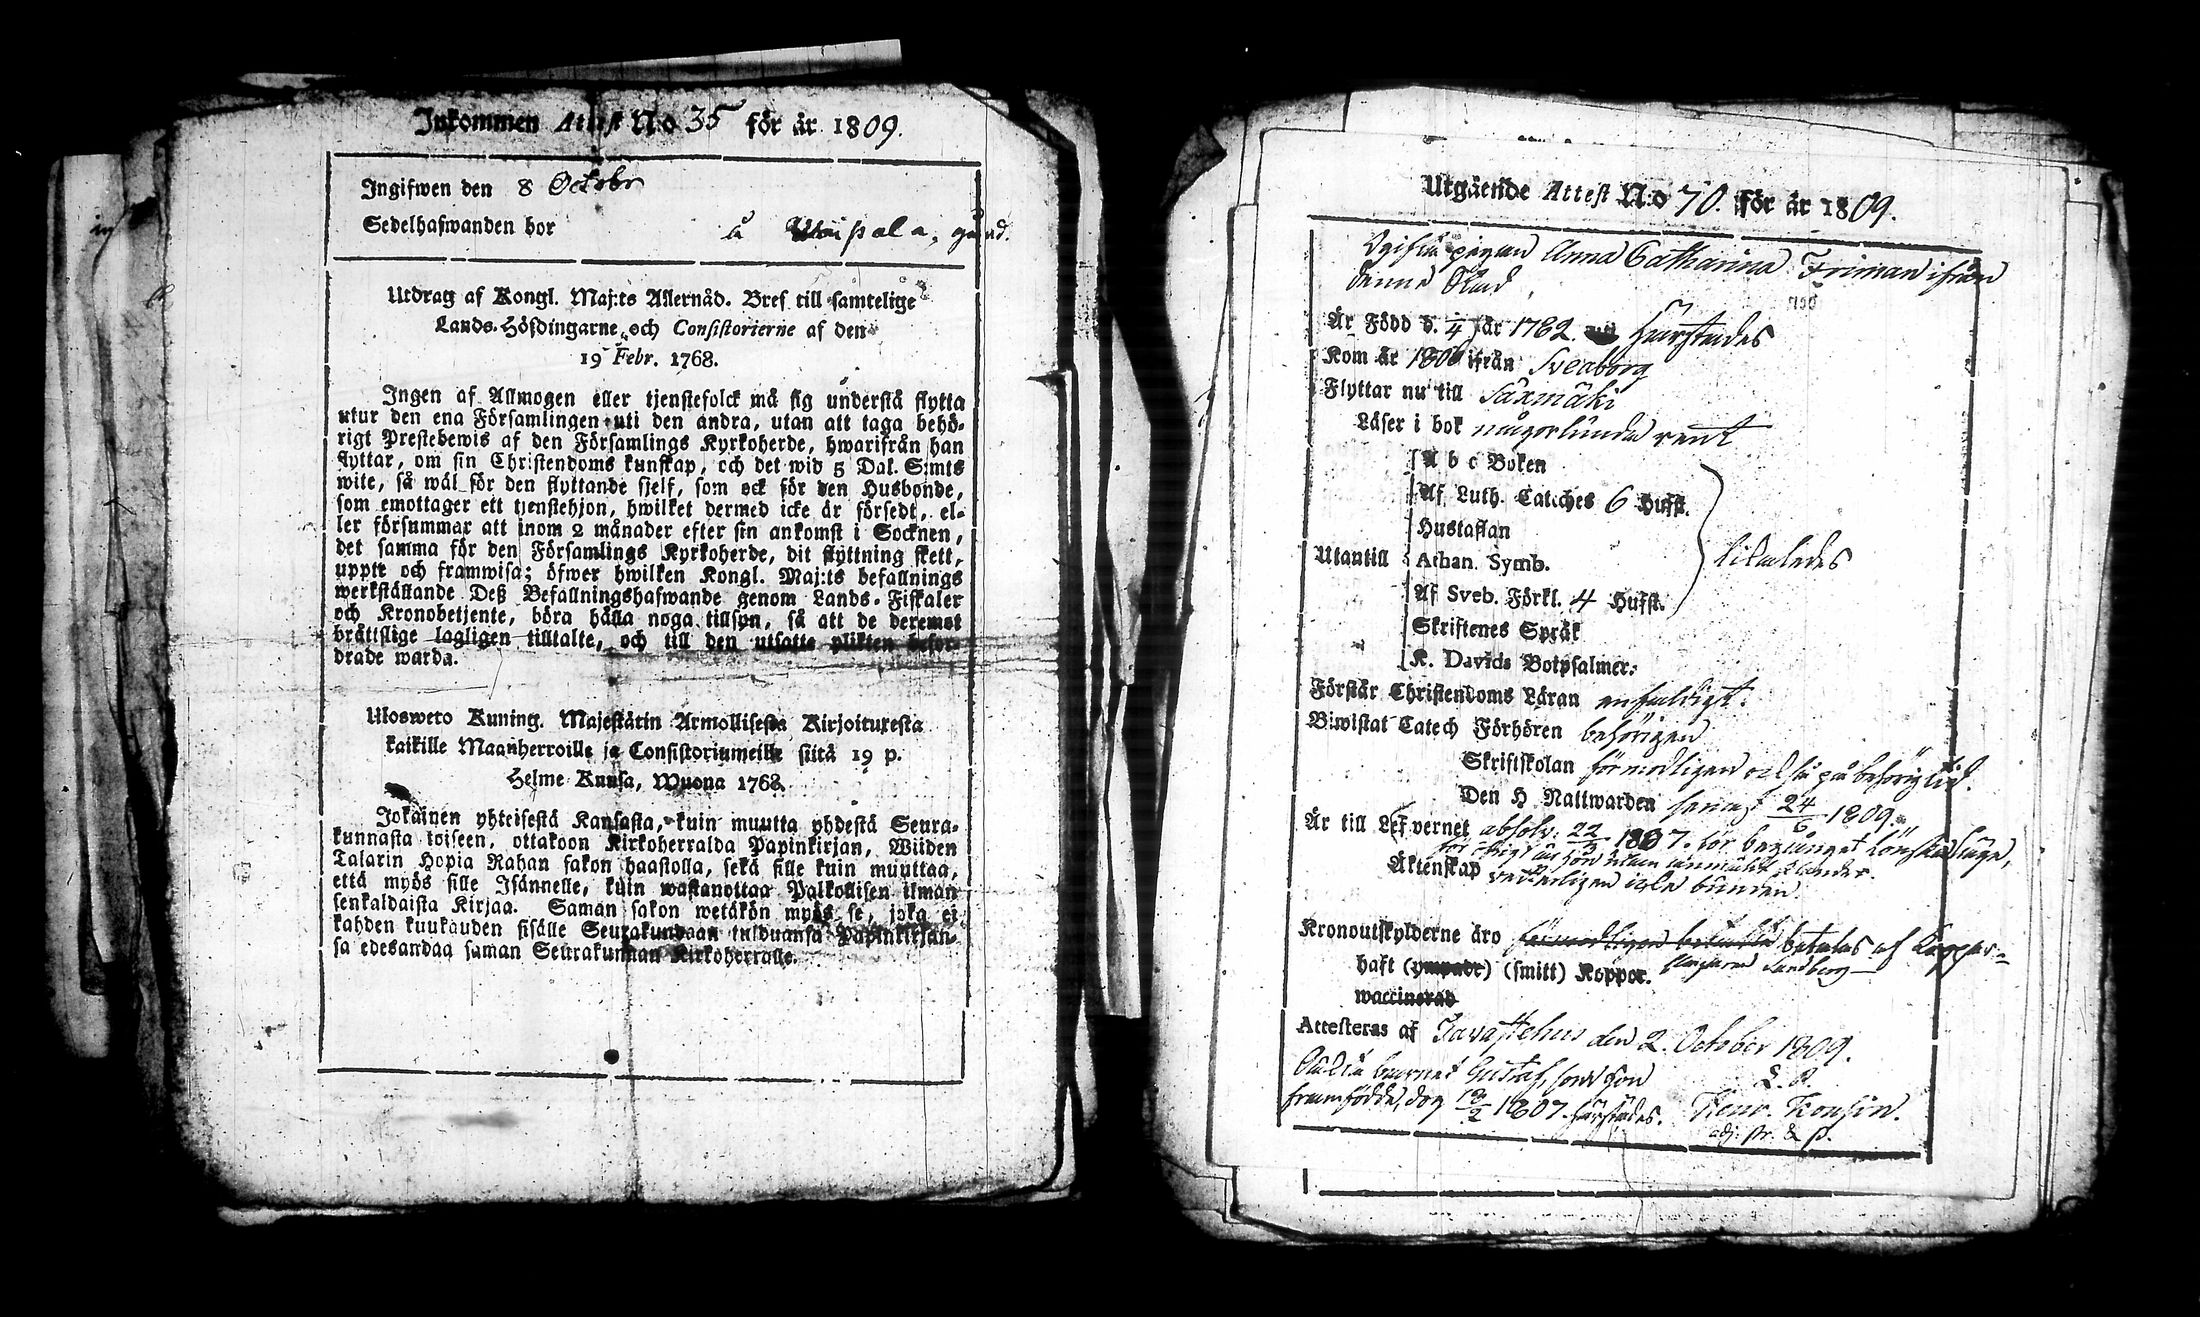 Inkommen Attest N:o 35 för år 1809.
Ingifwen den 8 Octobr
Sedelhafwanden bor
å Uuispala, gård.
Utdrag af Kongl. Maj:ts Allernåd. Bref till samtelige
Lands-Höfdingarne och Consistorierne af den
19 Febr. 1768.
Ingen af Allmogen eller tjenstefolck må sig understå flytta
utur den ena Församlingen uti den andra, utan att taga behö-
rigt Prestebewis af den Församlings Kyrkoherde, hwarifrån han
flyttar, om sin Christendoms kunskap, och det wid 5 Dal. S:mts
wite, så wäl för den flyttande sjelf, som ock för den Husbonde,
som emottager ett tjenstehjon, hwilket dermed icke är försedt, el-
ler försummar att inom 2 månader efter sin ankomst i Socknen,
det samma för den Församlings Kyrkoherde, dit flyttning skett,
uppte och framwisa; öfwer hwilken Kongl. Maj:ts befallnings
werkställande Deß Befallningshafwande genom Lands-Fiskaler
och Kronobetjente, böra hålla noga tillsyn, så att de deremot
bråttslige lagligen tilltalte, och till den utsatte plikten befor-
drade warda.
Ulosweto Kuning. Majestätin Armollisesta Kirjoituresta
kaikille Maanherroille ja Consistoriumeille siitä 19 p.
Helme Kuusa, Wuona 1768.
Jokainen yhteisestä Kansasta, kuin muutta yhdestä Seura-
kunnasta toiseen, ottakoon Kirkoherralda Papinkirjan, Wiiden
Talarin Hopia Rahan sakon haastolla, sekä sille kuin muuttaa,
että myös sille Isännelle, kuin wastanottaa Palkollisen ilman
senkaldaista Kirjaa. Saman sakon wetäkön myös se, joka ei
kahden kuukauden sisälle Seurakundaan tulduansa Papinkirjan-
sa edesandaa saman Seurakunnan Kirkoherralle.
Utgående Attest N:o 70. för år 1809.
Ogifta pigan Anna Catharina Friman ifrån
denna Stad
Är Född d. 1/4 år 1782. härstädes
Kom år 1806 ifrån Sveaborg
Flyttar nu till Säxmäki
Läser i bok någorlunda rent
A b c Boken
Af Luth. Catches 6 Hufst.
Hustaflan
Utantill Athan. Symb. likaledes
Af Sveb. Förkl. 4 Hufst.
Skriftenes Språk
K. Davids Botpsalmer.
Förstår Christendoms Läran enfaldigt.
Biwistat Catech Förhören behörigen
Skriftskolan förmodligen också på behörig tid.
Den H Nattwarden senast 24/6 1809.
Är till Lefvernet absolv. 22/3 1807. för begånget Lönskaläge,
för öfrigt är hon utan anmärkt klander.
Äktenskap veterligen icke bunden.
Kronoutskylderne äro förmodligen betalda betalas af Koppar-
haft (ympade) (smitt) Koppor. Sandberg
waccinerad
Attesteras af Tavastehus den 2. October 1809.
Oäkta barnet Gustaf, som hon L. R.
framfödde, dog 12/2 1807. härstädes. Henr. Konsin.
adj. str. & p.